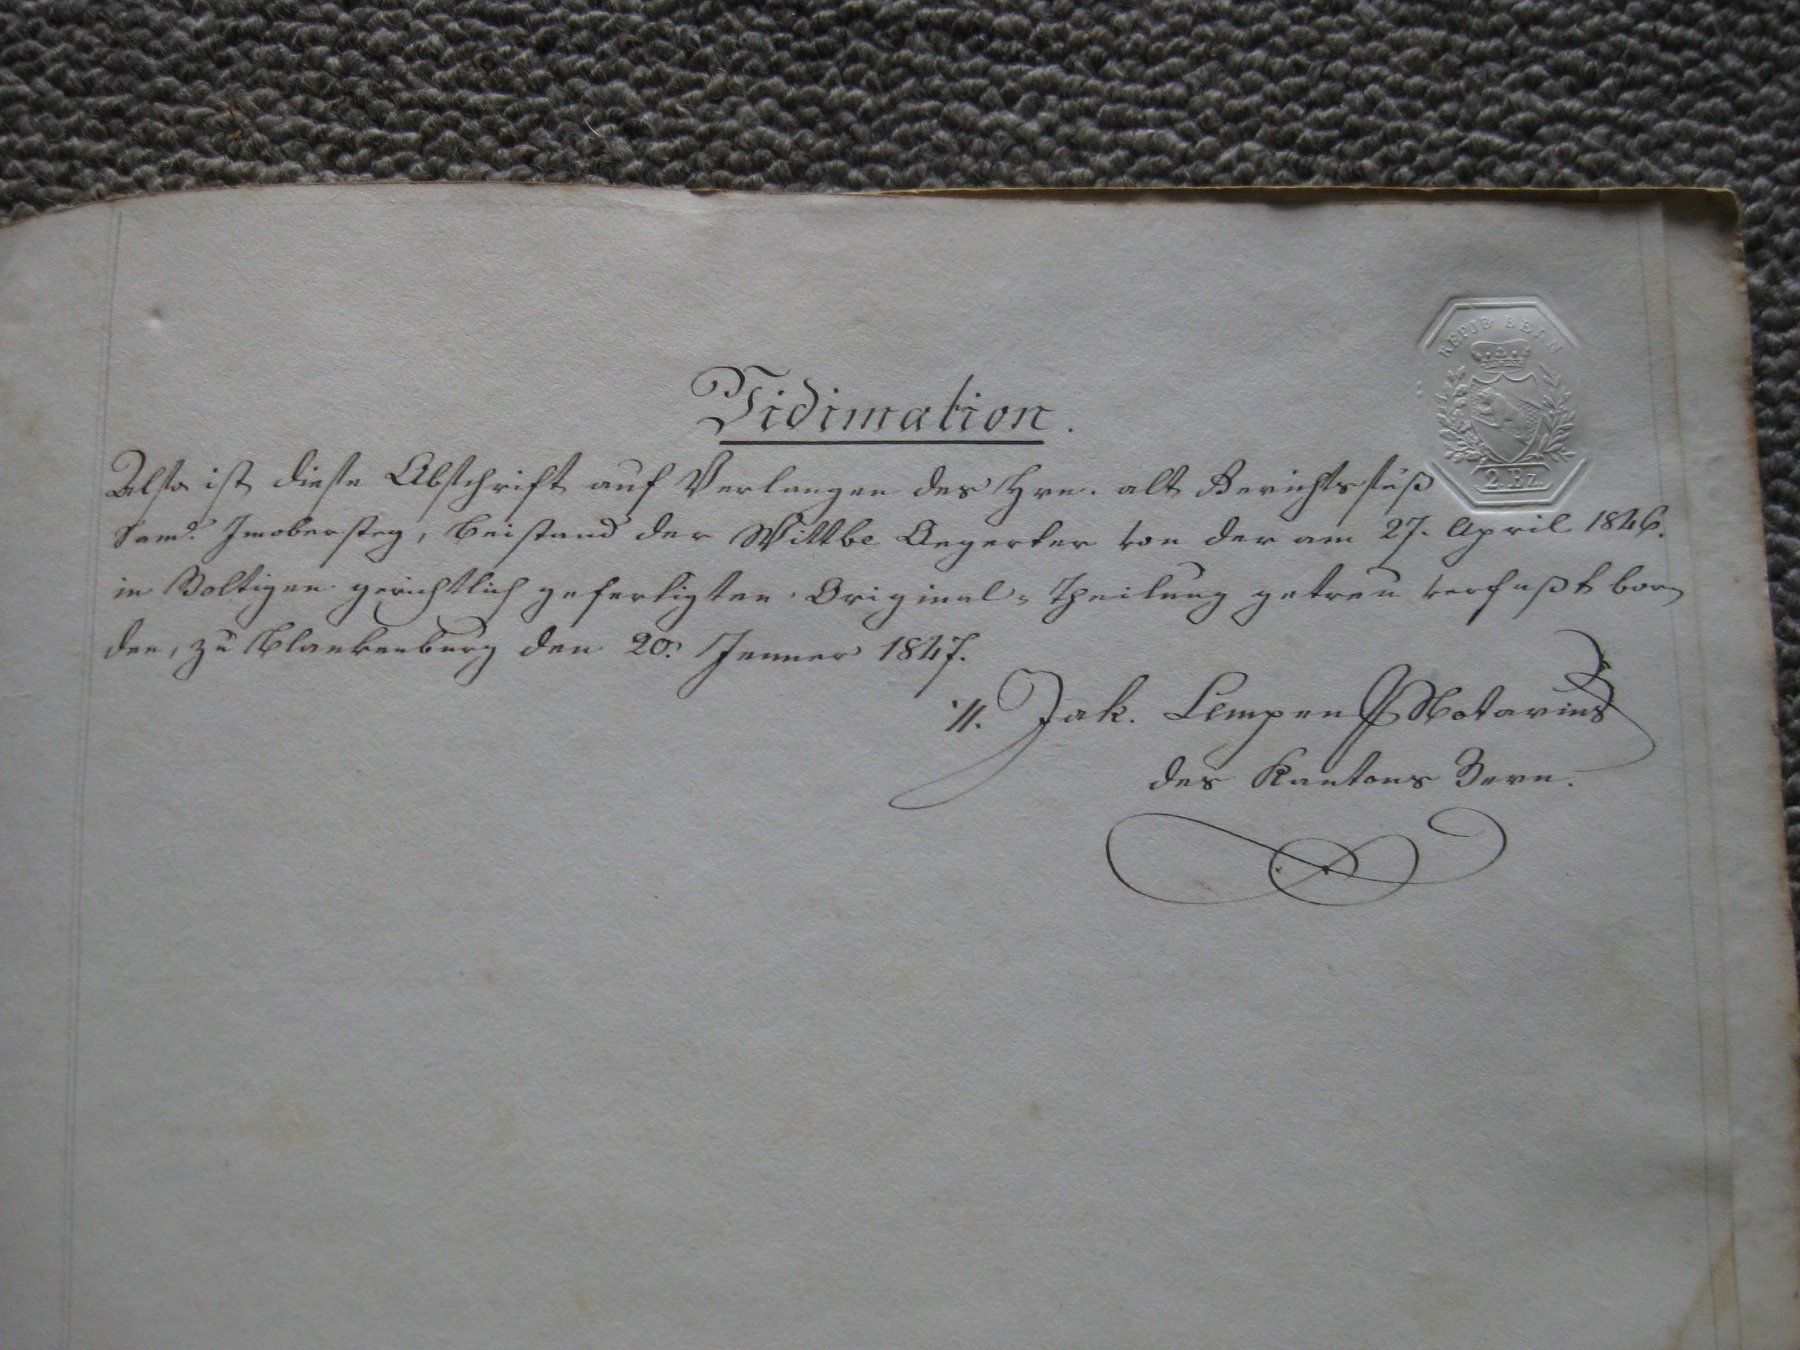 REPUB BERN
2. Bz.
Vidimation.
Also ist diese Abschrift auf Verlangen des Hrn. alt Gerichtssäß
Saml. Imobersteg, Beistand der Wittbe Aegerter von der am 27. April 1846.
in Boltigen gerichtlich gefertigten Original-Theilung getreu verfaßt wor
den, zu Blankenburg den 20. Jenner 1847.
Jak. Lempen Notarius
des Kantons Bern.